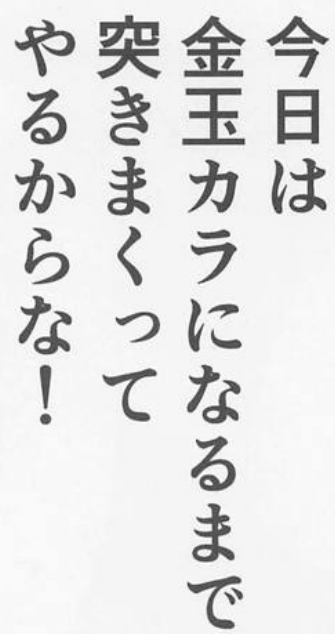 今日は
金玉カラになるまで
突きまくって
やるからな！